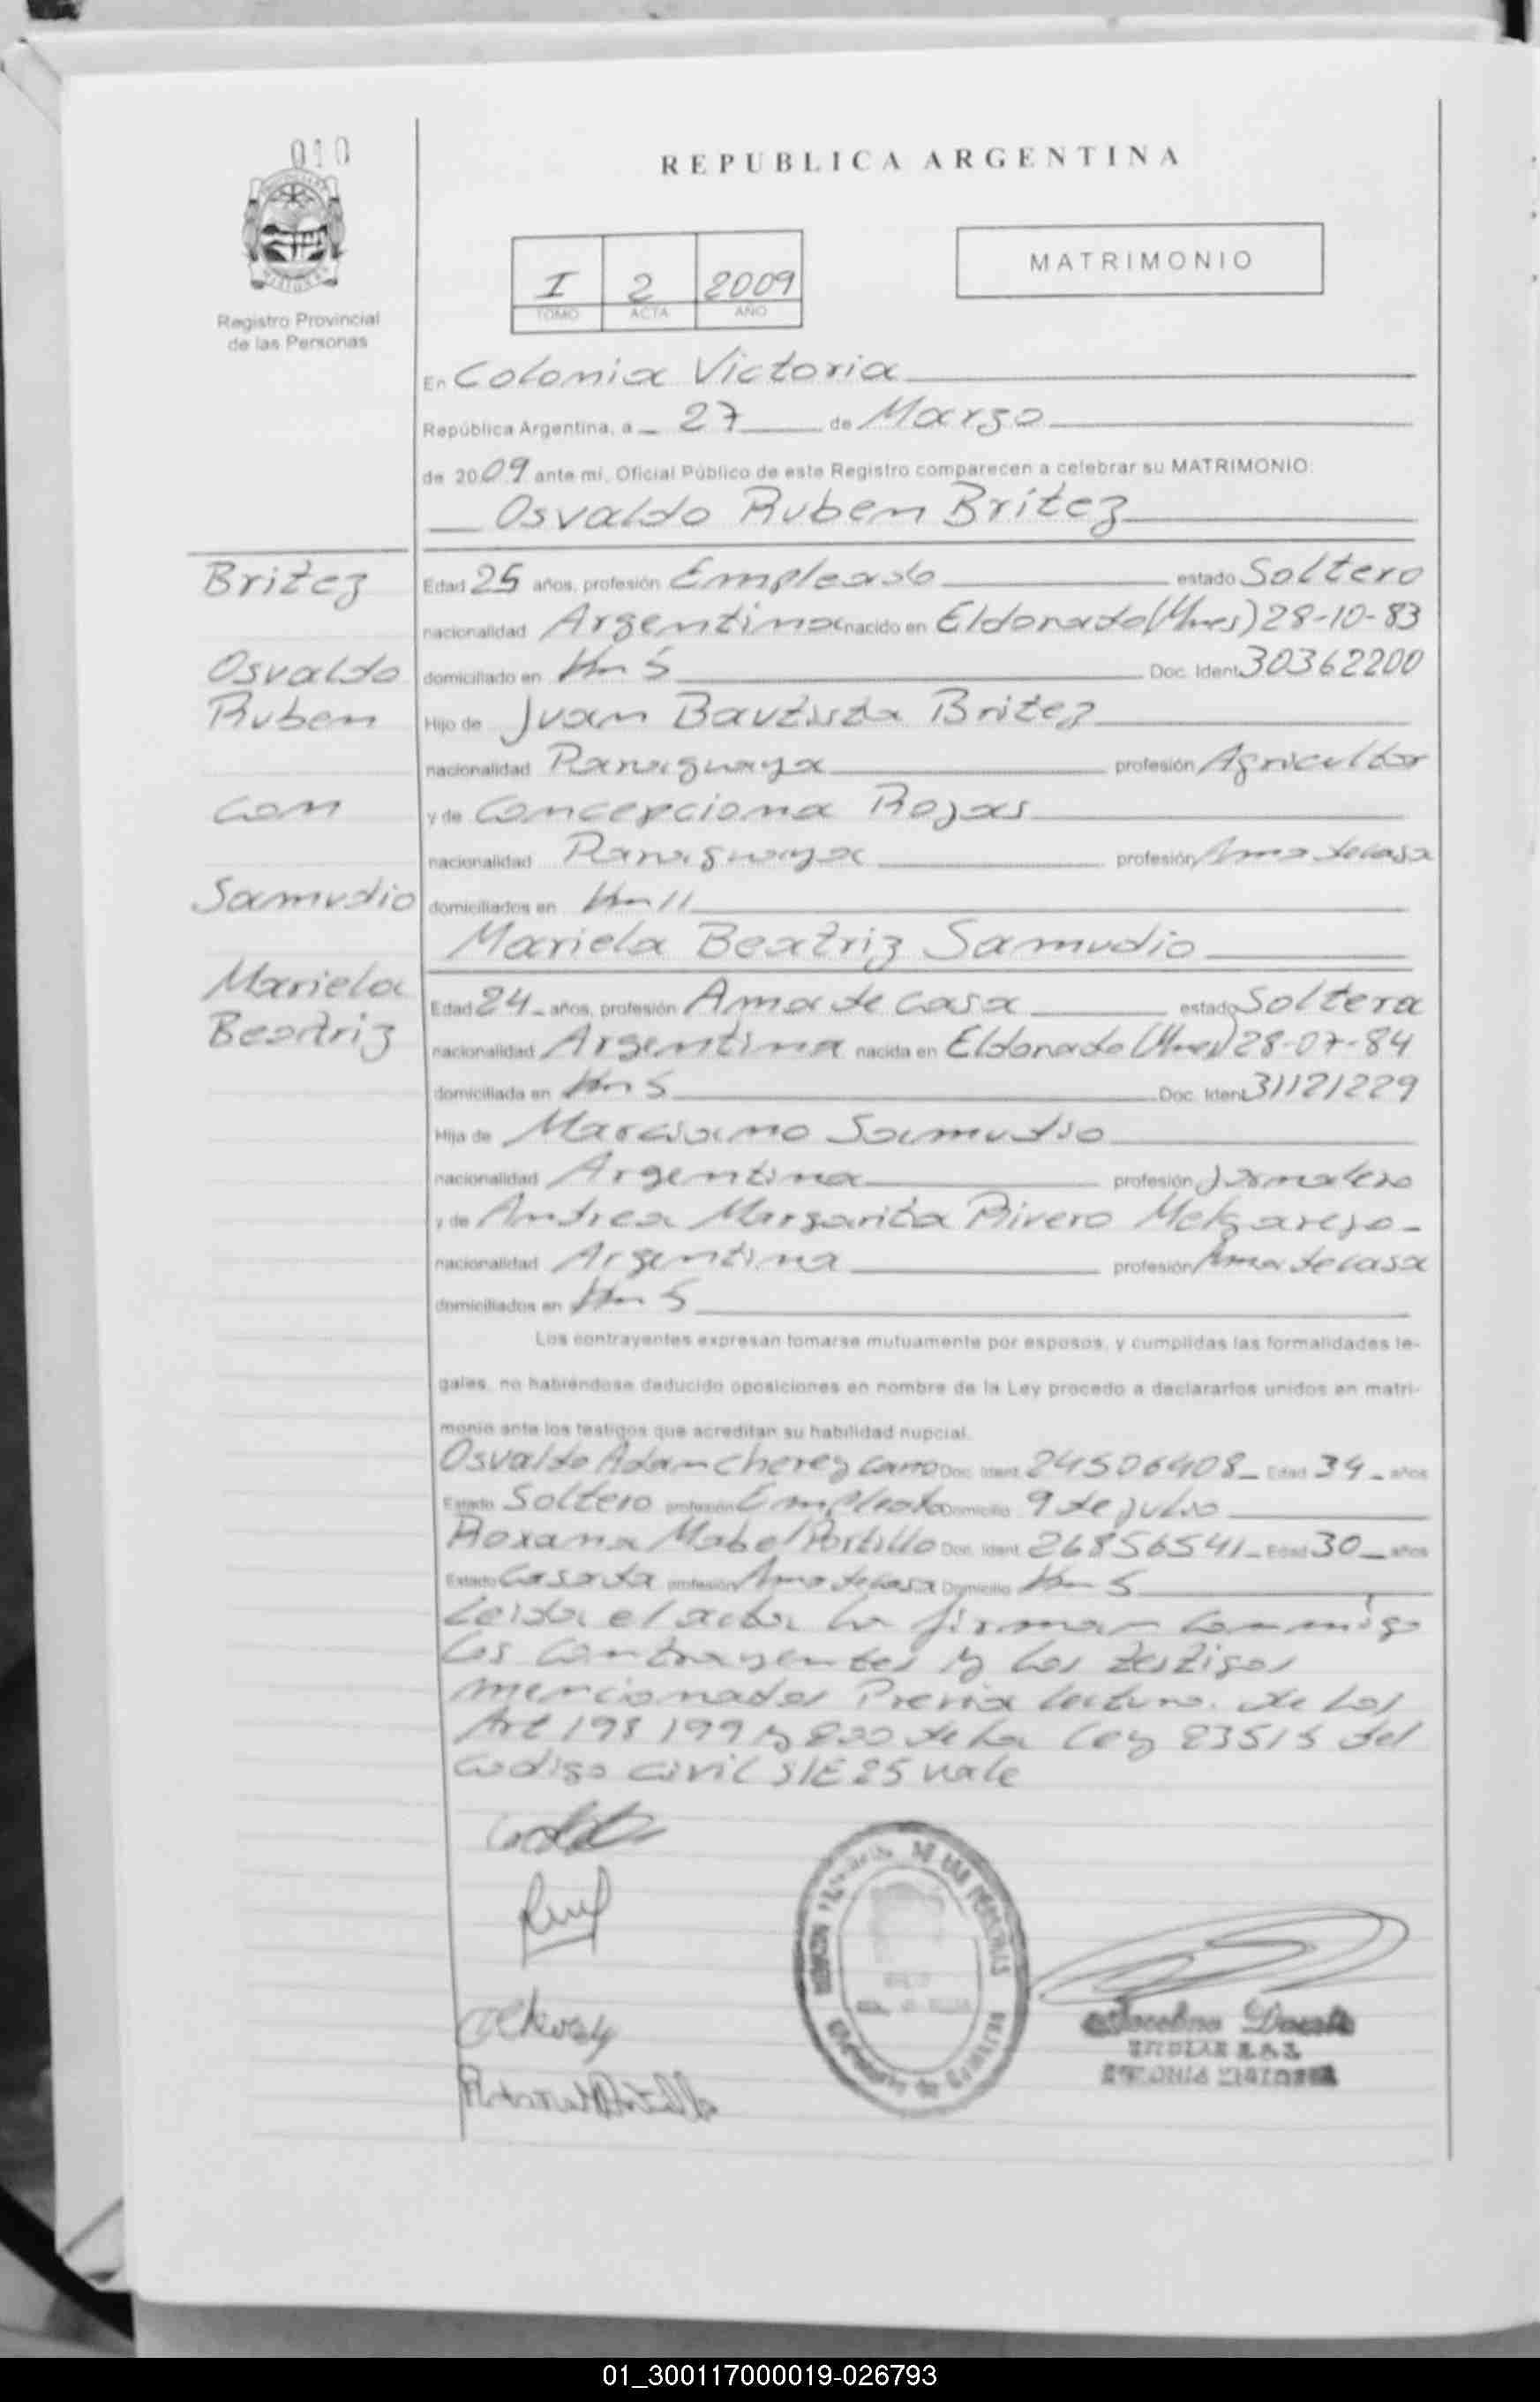 010
REPUBLICA ARGENTINA
MATRIMONIO
I 2 2009
TOMO ACTA AÑO
Registro Provincial
de las Personas
En Colonia Victoria
República Argentina, a 27 de Marzo
de 2009 ante mi, Oficial Público de este Registro comparecen a celebrar su MATRIMONIO:
Osvaldo Ruben Britez
Britez
Edad 25 años, profesión Empleado estado Soltero
nacionalidad Argentina nacido en Eldorado (Mnes) 28-10-83
Osvaldo
domiciliado en Km 5 Doc. Ident. 30362200
Ruben
Hijo de Juan Bautista Britez
nacionalidad Paraguaya profesión Agricultor
con
y de Concepciona Rojas
nacionalidad Paraguaya profesión Ama de casa
Samudio
domiciliados en Km 11
Mariela Beatriz Samudio
Mariela
Edad 24 años, profesión Ama de casa estado Soltera
Beatriz
nacionalidad Argentina nacida en Eldorado (Mnes) 28-07-84
domiciliada en Km 5 Doc. Ident. 31121229
Hija de Marcsiano Samudio
nacionalidad Argentina profesión Jornalero
y de Andrea Margarita Rivero Melgarejo
nacionalidad Argentina profesión Ama de casa
domiciliados en Km 5
Los contrayentes expresan tomarse mutuamente por esposos, y cumplidas las formalidades le-
gales, no habiéndose deducido oposiciones en nombre de la Ley procedo a declararlos unidos en matri-
monio ante los testigos que acreditan su habilidad nupcial.
Osvaldo Adan Cherey Doc. Ident. 24506408 Edad 34 años
Estado Soltero profesión Empleado Domicilio 9 de Julio
Roxana Mabel Portillo Doc. Ident. 26856541 Edad 30 años
Estado Casada profesión Ama de casa Domicilio Km 5
Leida el acta la firman conmigo
los contrayentes y los testigos
mencionados Previa lectura de los
Art 198 199 y 200 de la Ley 23515 del
codigo civil S/E 25 vale
DE LAS PERSONAS
Duarte
TITULAR
COLONIA VICTORIA
01_300117000019-026793